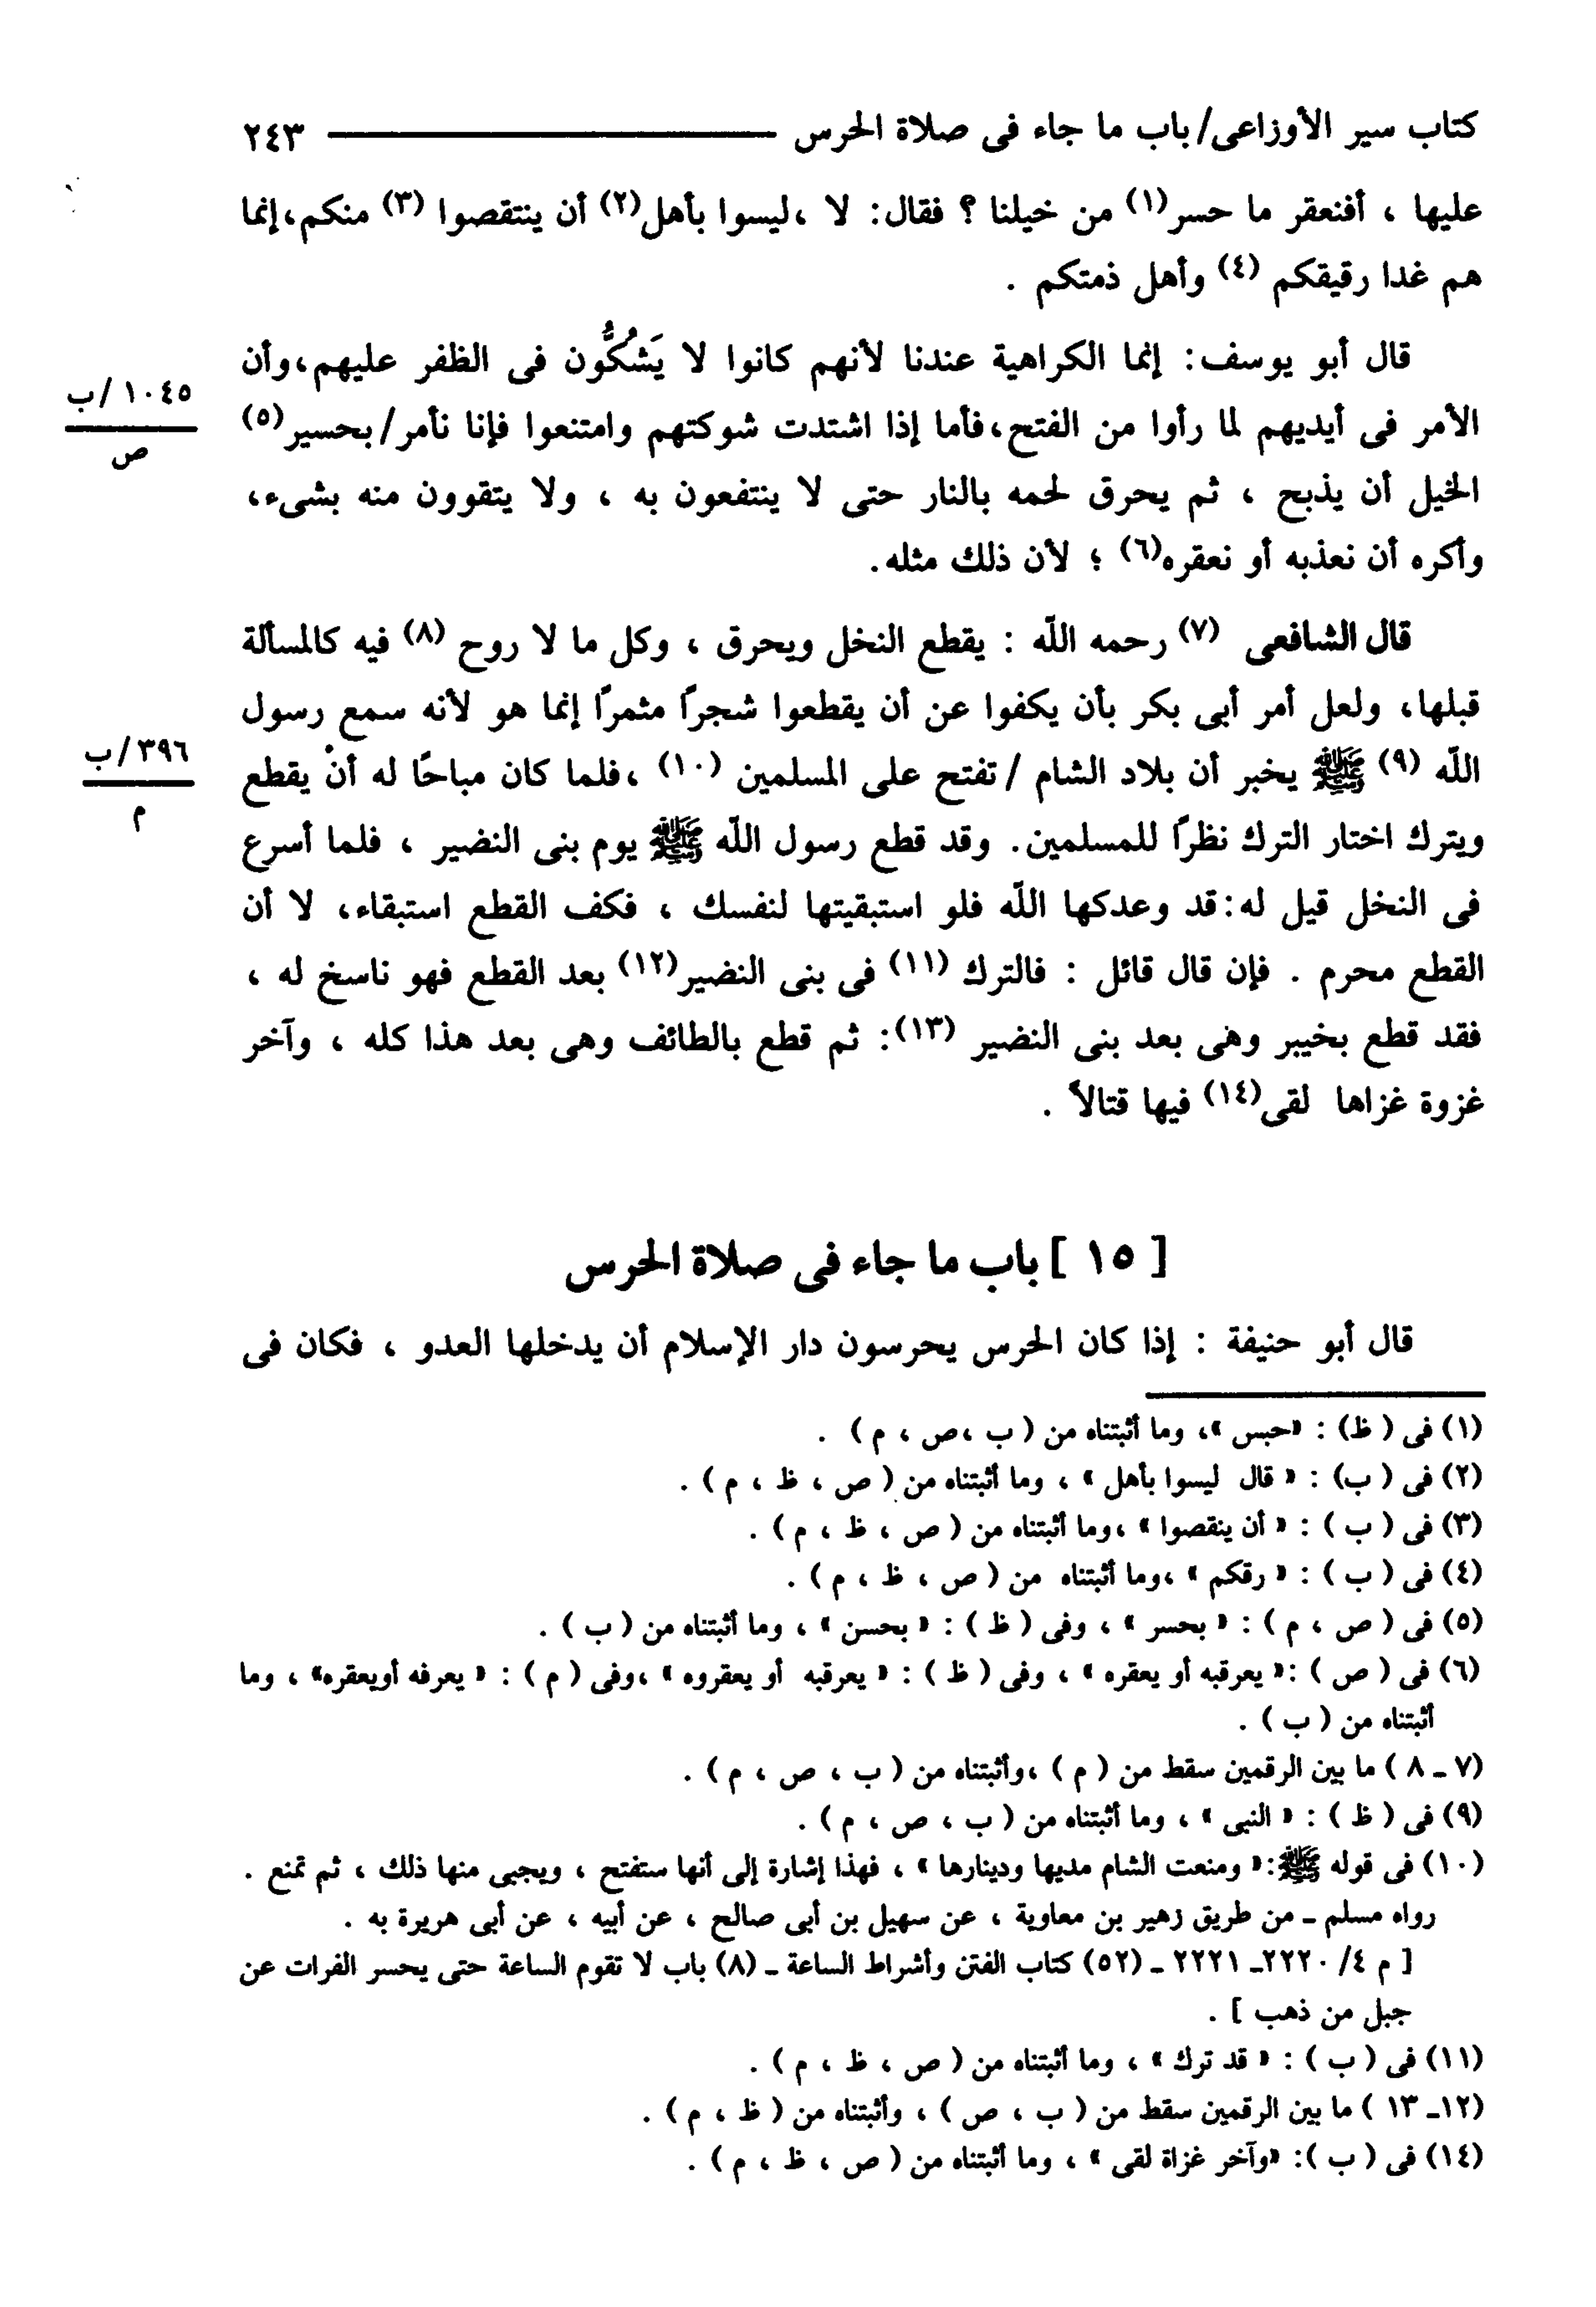 كتاب سير الأوزاعى/ باب ما جاء فى صلاة الحرس ــــــ ٢٤٣
عليها ، أفنعقر ما حسر(١) من خيلنا ؟ فقال: لا ،ليسوا بأهل(٢) أن ينتقصوا (٣) منكم،إنما
هم غدا رقيقكم (٤) وأهل ذمتكم .
قال أبو يوسف: إنما الكراهية عندنا لأنهم كانوا لا يَشكُّون فى الظفر عليهم،وأن
١٠٤٥ /ب
الأمر فى أيديهم لما رأوا من الفتح،فأما إذا اشتدت شوكتهم وامتنعوا فإنا نأمر/ بحسير(٥)
ص
الخيل أن يذبح ، ثم يحرق لحمه بالنار حتى لا ينتفعون به ، ولا يتقوون منه بشىء،
وأكره أن نعذبه أو نعقره(٦) ؛ لأن ذلك مثله.
قال الشافعى (٧) رحمه اللّه : يقطع النخل ويحرق ، وكل ما لا روح (٨) فيه كالمسألة
قبلها، ولعل أمر أبى بكر بأن يكفوا عن أن يقطعوا شجراً مثمراً إنما هو لأنه سمع رسول
٣٩٦ /ب
اللّه (٩) ﷺ يخبر أن بلاد الشام /تفتح على المسلمين (١٠) ،فلما كان مباحًا له أنْ يقطع
م
ويترك اختار الترك نظراً للمسلمين. وقد قطع رسول اللّه ﷺ يوم بنى النضير ، فلما أسرع
فى النخل قيل له:قد وعدكها اللّه فلو استبقيتها لنفسك ، فكف القطع استبقاء، لا أن
القطع محرم . فإن قال قائل : فالترك (١١) فى بنى النضير(١٢) بعد القطع فهو ناسخ له ،
فقد قطع بخيبر وهى بعد بنى النضير (١٣): ثم قطع بالطائف وهى بعد هذا كله ، وآخر
غزوة غزاها لقى(١٤) فيها قتالاً .
[ ١٥ ] باب ما جاء فى صلاة الحرس
قال أبو حنيفة : إذا كان الحرس يحرسون دار الإسلام أن يدخلها العدو ، فكان فى
(١) فى ( ظ) : «حبس »، وما أثبتناه من ( ب ،ص ، م ) .
(٢) فى ( ب) : « قال ليسوا بأهل » ، وما أثبتناه من ( ص ، ظ ، م ) .
(٣) فى ( ب ) : « أن ينقصوا » ،وما أثبتناه من ( ص ، ظ ، م ) .
(٤) فى ( ب ) : « رقكم » ،وما أثبتناه من ( ص ، ظ ، م ) .
(٥) فى ( ص ، م ) : « بحسر » ، وفى ( ظ ) : « بحسن » ، وما أثبتناه من ( ب ) .
(٦) فى ( ص ) :« يعرقبه أو يعقره » ، وفى ( ظ ) : « يعرقبه أو يعقروه » ،وفى ( م ) : « يعرفه أويعقره» ، وما
أثبتناه من ( ب ) .
(٧ ـ ٨ ) ما بين الرقمين سقط من ( م ) ،وأثبتناه من ( ب ، ص ، م ) .
(٩) فى ( ظ ) : « النبى » ، وما أثبتناه من ( ب ، ص ، م ) .
(١٠) فى قوله ﷺ:« ومنعت الشام مديها ودينارها » ، فهذا إشارة إلى أنها ستفتح ، ويجبى منها ذلك ، ثم تمنع .
رواه مسلم ـ من طريق زهير بن معاوية ، عن سهيل بن أبى صالح ، عن أبيه ، عن أبى هريرة به .
[ م ٤/ ٢٢٢٠ـ ٢٢٢١ ـ (٥٢) كتاب الفتن وأشراط الساعة ـ (٨) باب لا تقوم الساعة حتى يحسر الفرات عن
جبل من ذهب ] .
(١١) فى ( ب ) : « قد ترك » ، وما أثبتناه من ( ص ، ظ ، م ) .
(١٢ـ ١٣ ) ما بين الرقمين سقط من ( ب ، ص ) ، وأثبتناه من ( ظ ، م ) .
(١٤) فى ( ب ): «وآخر غزاة لقى » ، وما أثبتناه من ( ص ، ظ ، م ) .